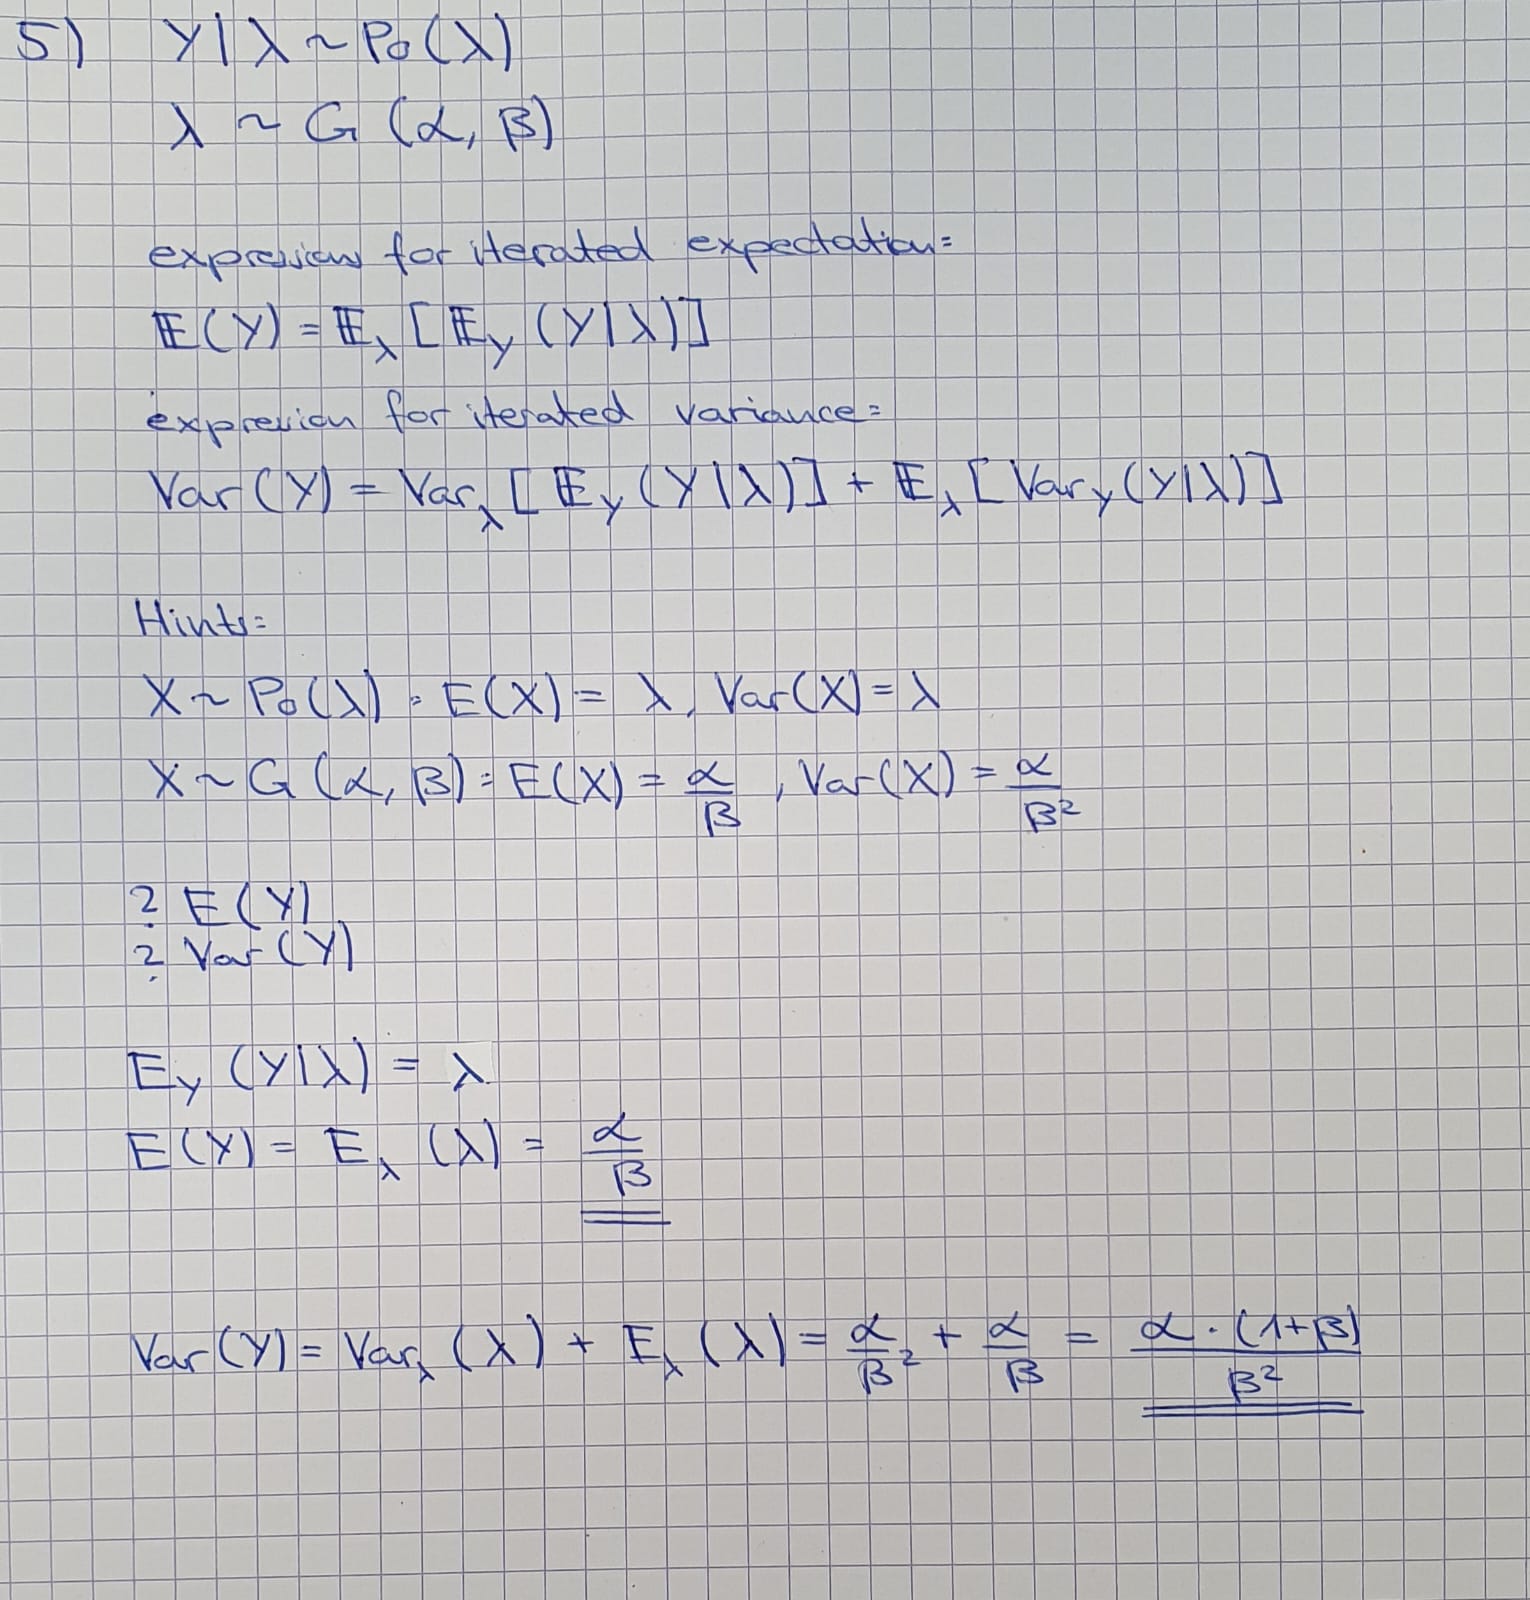 5) Y|λ ~ Po(λ)
λ ~ G(α, β)
expression for iterated expectation:
𝔼(Y) = 𝔼_λ [𝔼_Y (Y|λ)]
expression for iterated variance:
Var(Y) = Var_λ [𝔼_Y (Y|λ)] + 𝔼_λ [Var_Y (Y|λ)]
Hints:
X ~ Po(λ) : E(X) = λ, Var(X) = λ
X ~ G(α, β) : E(X) = α/β , Var(X) = α/β²
? E(Y)
? Var(Y)
E_Y (Y|λ) = λ
E(Y) = E_λ (λ) = α/β
Var(Y) = Var_λ (λ) + E_λ (λ) = α/β² + α/β = α·(1+β)/β²